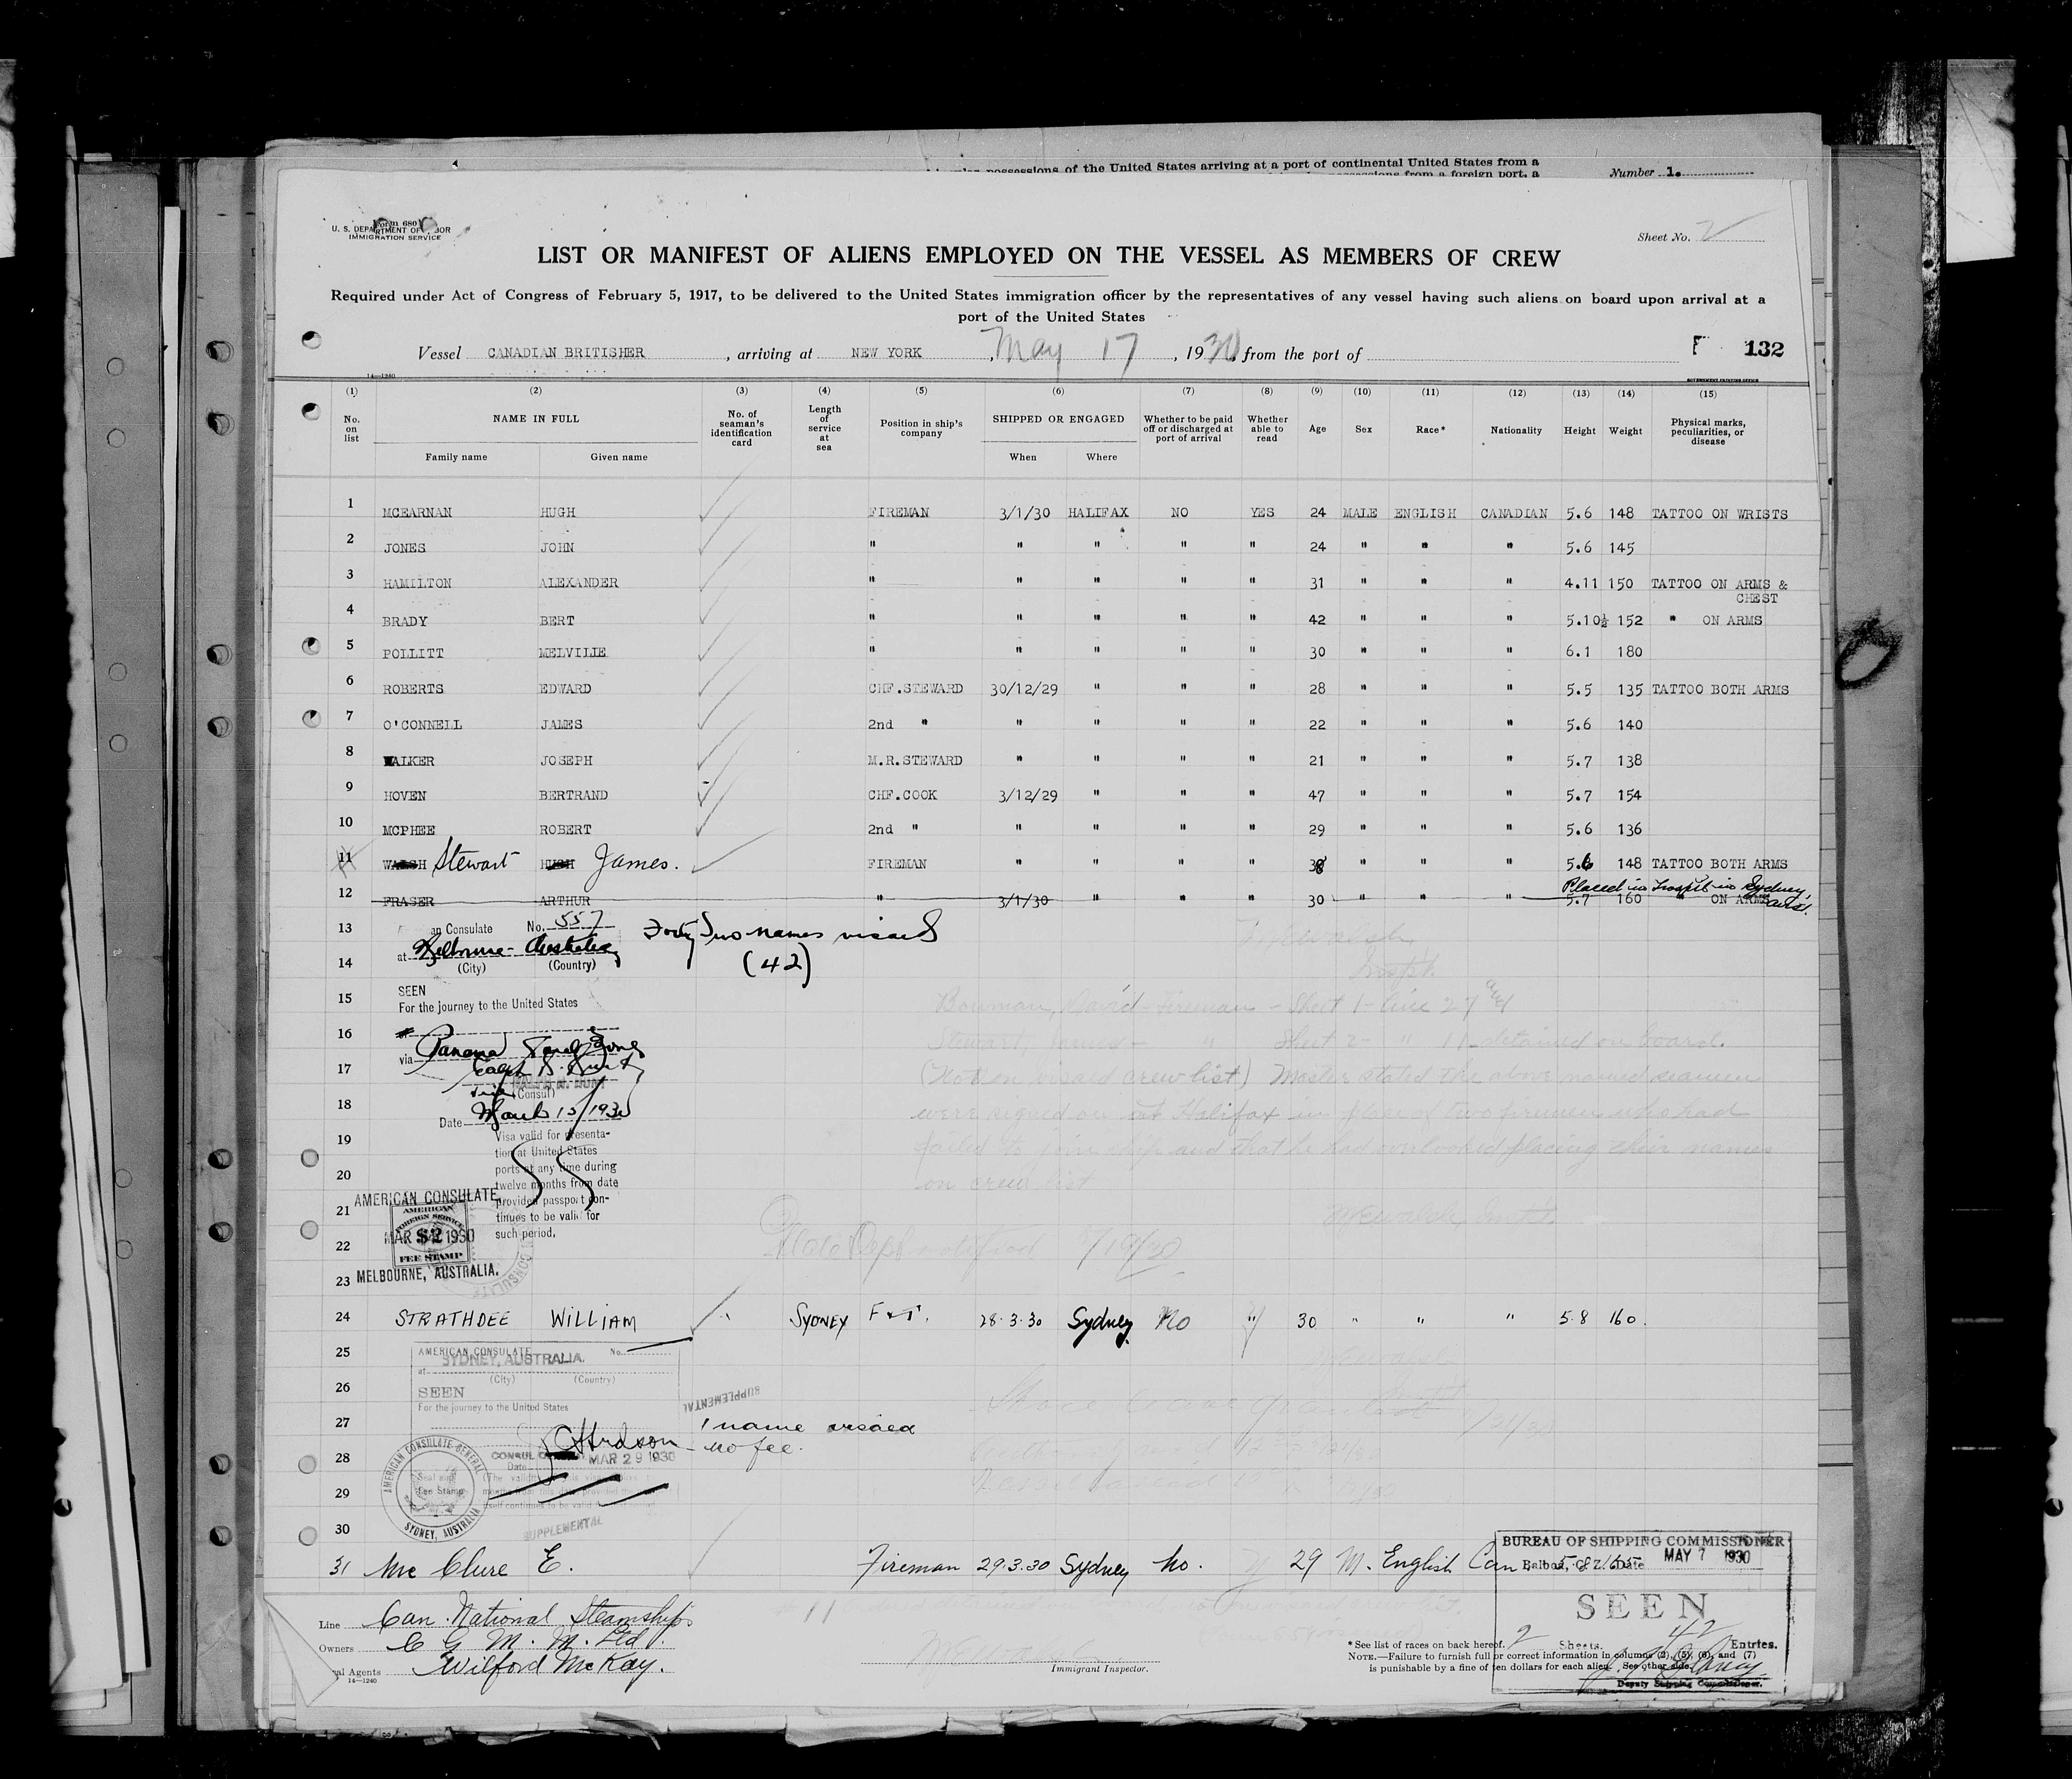 possessions of the United States arriving at a port of continental United States from a
from a foreign port, a
Number 1.
Form 680
U. S. DEPARTMENT OF LABOR
IMMIGRATION SERVICE
Sheet No. 2
LIST OR MANIFEST OF ALIENS EMPLOYED ON THE VESSEL AS MEMBERS OF CREW
Required under Act of Congress of February 5, 1917, to be delivered to the United States immigration officer by the representatives of any vessel having such aliens on board upon arrival at a
port of the United States
Vessel CANADIAN BRITISHER, arriving at NEW YORK, May 17, 1930, from the port of
132
14—1240
GOVERNMENT PRINTING OFFICE
(1) (2) (3) (4) (5) (6) (7) (8) (9) (10) (11) (12) (13) (14) (15)
No. on list NAME IN FULL No. of seaman's identification card Length of service at sea Position in ship's company SHIPPED OR ENGAGED Whether to be paid off or discharged at port of arrival Whether able to read Age Sex Race* Nationality Height Weight Physical marks, peculiarities, or disease
Family name Given name When Where
1 MCEARNAN HUGH FIREMAN 3/1/30 HALIFAX NO YES 24 MALE ENGLISH CANADIAN 5.6 148 TATTOO ON WRISTS
2 JONES JOHN " " " " " 24 " " " 5.6 145
3 HAMILTON ALEXANDER " " " " " 31 " " " 4.11 150 TATTOO ON ARMS &
CHEST
4 BRADY BERT " " " " " 42 " " " 5.10½ 152 " ON ARMS
5 POLLITT MELVILIE " " " " " 30 " " " 6.1 180
6 ROBERTS EDWARD CHF.STEWARD 30/12/29 " " " 28 " " " 5.5 135 TATTOO BOTH ARMS
7 O'CONNELL JAMES 2nd " " " " " 22 " " " 5.6 140
8 WALKER JOSEPH M.R.STEWARD " " " " 21 " " " 5.7 138
9 HOVEN BERTRAND CHF.COOK 3/12/29 " " " 47 " " " 5.7 154
10 MCPHEE ROBERT 2nd " " " " " 29 " " " 5.6 136
11 WALSH Stewart HUGH James. FIREMAN " " " " 38 " " " 5.6 148 TATTOO BOTH ARMS
Placed in Hospital in Sydney,
12 FRASER ARTHUR " 3/1/30 " " " 30 " " " 5.7 160 " ON ARMS
13 an Consulate No. 557 Forty Two names visaed
at Melbourne - Australia (42)
14 (City) (Country)
15 SEEN
For the journey to the United States
Bowman, David - Fireman - Sheet 1 - Line 27 and
16
Stewart, James - " Sheet 2 - " 11 detained on board.
via Panama Canal Zone
17 (Not on visaed crew list) Master stated the above named seamen
RALPH H. HUNT
(Consul)
18 were signed on at Halifax in place of two firemen who had
Date March 15/1930
19 Visa valid for presenta-
failed to join ship and that he had overlooked placing their names
tion at United States
20 ports at any time during
on crew list
twelve months from date
AMERICAN CONSULATE provided passport con-
21 tinues to be valid for
such period.
AMERICAN
FOREIGN SERVICE
22 MAR $2 1930
FEE STAMP
23 MELBOURNE, AUSTRALIA.
24 STRATHDEE WILLIAM SYDNEY F & T. 28.3.30 Sydney No " 30 " " " 5.8 160.
25 AMERICAN CONSULATE No.
SYDNEY, AUSTRALIA.
at (City) (Country)
26 SEEN SUPPLEMENTAL
For the journey to the United States
27 1 name visaed
28 CHudson no fee.
CONSUL
Date MAR 29 1930
AMERICAN CONSULATE GENERAL
Seal and
Fee Stamp
29
SYDNEY, AUSTRALIA
30 SUPPLEMENTAL
31 Mc Clure E. Fireman 29.3.30 Sydney No. y 29 M. English Can
BUREAU OF SHIPPING COMMISSIONER
Balboa, C. Z. Date MAY 7 1930
SEEN
2 Sheets. 42 Entries.
Deputy Shipping Commissioner.
Line Can. National Steamships
Owners C G M. M. Ltd.
Agents Wilford McKay.
14—1240
# 11
Immigrant Inspector.
*See list of races on back hereof.
NOTE.—Failure to furnish full or correct information in columns (2), (5), (6), and (7)
is punishable by a fine of ten dollars for each alien. See other side.